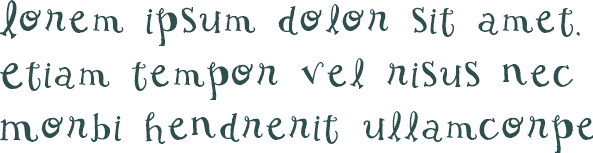 lorem ipsum dolor sit amet.
etiam tempor vel risus nec
morbi hendrerit ullamcorpe